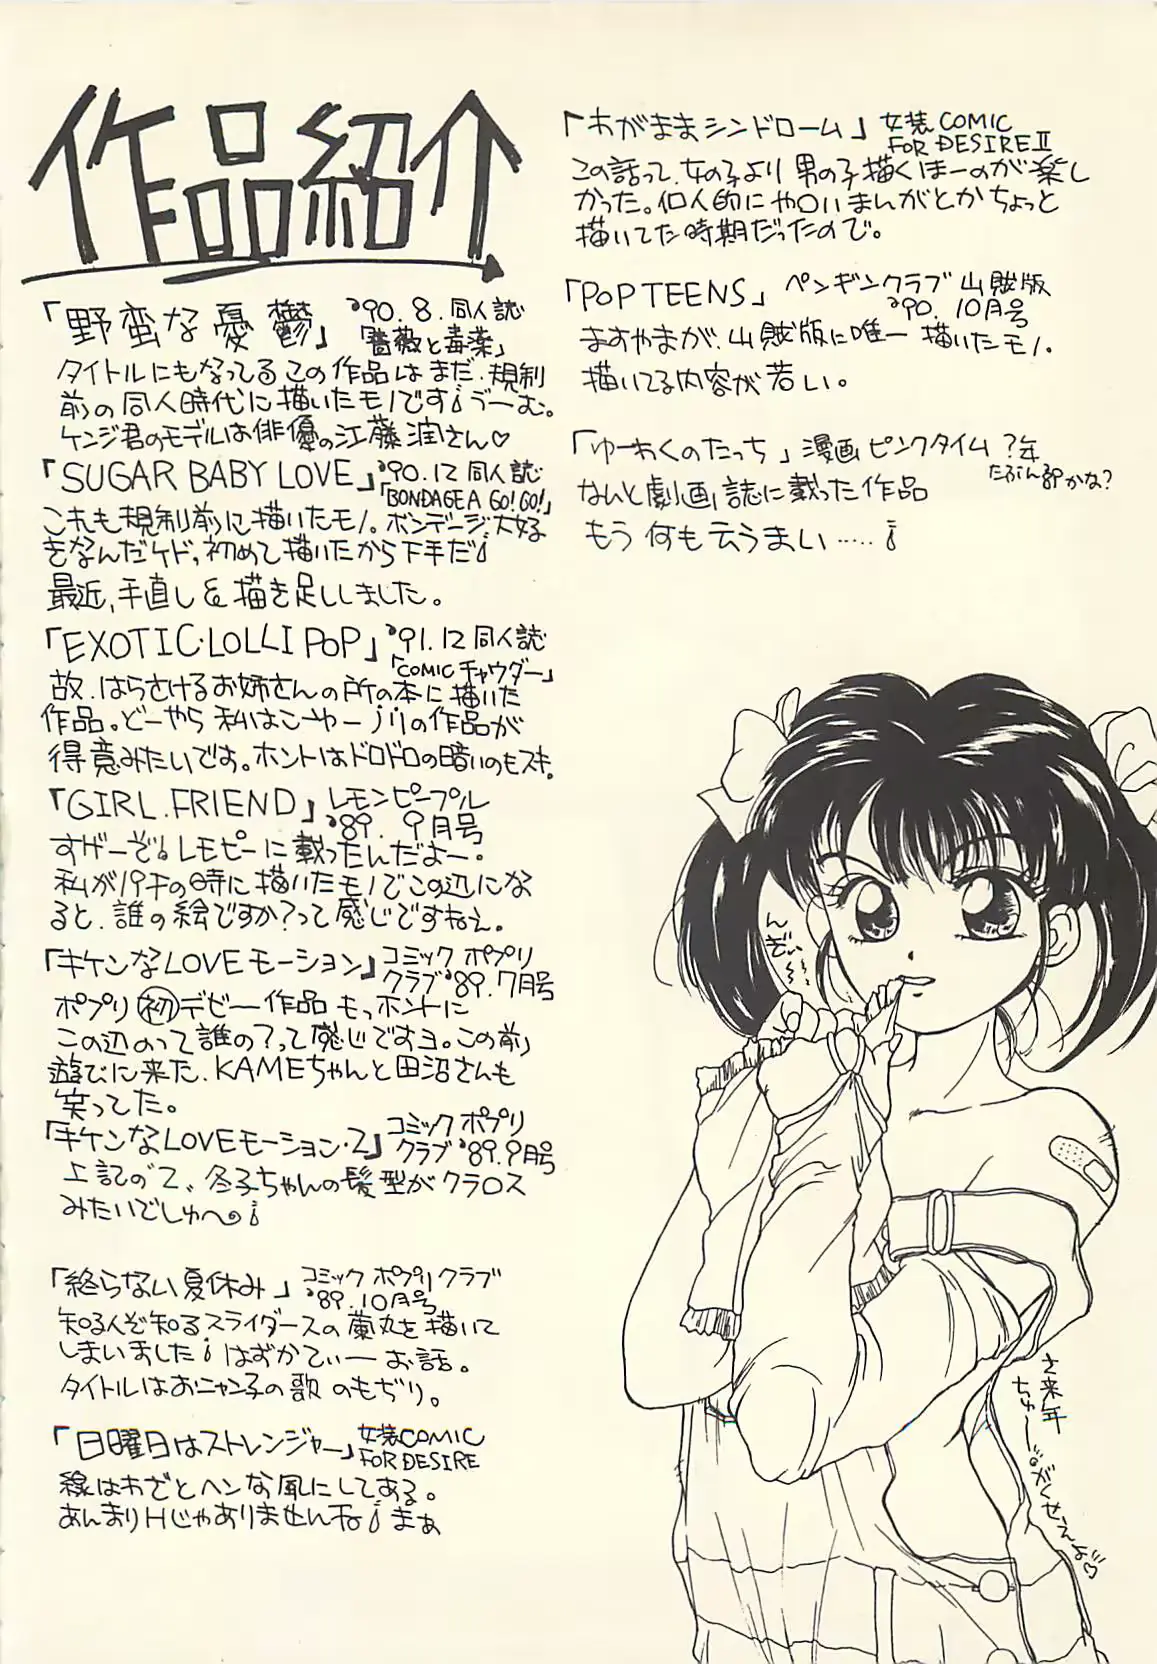 作品紹介
「野蛮な憂鬱」 '90.8.同人誌
「薔薇と毒薬」
タイトルにもなってるこの作品はまだ、規制
前の同人時代に描いたモノです!うーむ。
ケンジ君のモデルは俳優の江藤潤さん♡
「SUGAR BABY LOVE」 '90.12 同人誌
「BONDAGE A GO!GO!」
これも規制前に描いたモノ。ボンデージ大好
きなんだケド、初めて描いたから下手だ!
最近、手直し&描き足ししました。
「EXOTIC・LOLLIPOP」 '91.12 同人誌
「COMIC チャウダー」
故.はらさけるお姉さんの所の本に描いた
作品。どーやら私はこーゆーノリの作品が
得意みたいです。ホントはドロドロの暗いのもスキ。
「GIRL.FRIEND」 レモンピープル
'89.9月号
すげーぞ!レモピーに載ったんだよー。
私がパチの時に描いたモノでこの辺にな
ると、誰の絵ですか?って感じですねぇ。
「キケンなLOVEモーション」 コミック ポプリ
クラブ '89.7月号
ポプリ初デビー作品 もぅホントに
この辺のって誰の?って感じですヨ。この前
遊びに来た、KAMEちゃんと田沼さんも
笑ってた。
「キケンなLOVEモーション・2」 コミック ポプリ
クラブ '89.9月号
上記の2、冬子ちゃんの髪型がクラロス
みたいでしゅ〜!
「終らない夏休み」 コミック ポプリクラブ
'89.10月号
知る人ぞ知るスライダースの蘭丸を描いて
しまいました!はずかてぃーお話。
タイトルはおニャン子の歌のもぢり。
「日曜日はストレンジャー」 女装COMIC
FOR DESIRE
線はわざとヘンな風にしてある。
あんまりHじゃありませんね!まぁ
「わがままシンドローム」 女装COMIC
FOR DESIRE II
この話って、女の子より男の子描くほーのが楽し
かった。個人的にや○いまんがとかちょっと
描いてた時期だったので。
「POP TEENS」 ペンギンクラブ山賊版
'90.10月号
ますやまが、山賊版に唯一描いたモノ。
描いてる内容が若い。
「ゆーわくのたっち」 漫画ピンクタイム ?年
たぶん89かな?
なんと劇画誌に載った作品
もう何も云うまい……!
んぞぃ〜
さ来年
ちゅー。がくせぇよ♡